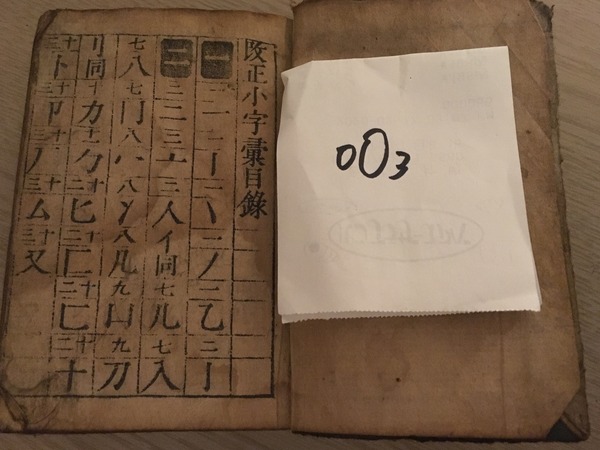 改正小字彙目錄
一 一 一 一 丨 二 丶 二 丿 二 乙 二 亅
二 二 二 三 亠 三 人 亻同 七 儿 七 入
七 八 七 冂 八 冖 八 冫 八 几 九 凵 九 刀
刂同 十 力 十一 勹 十二 匕 十二 匚 十二 匸 十二 十
十三 卜 十三 卩 十三 厂 十三 厶 十三 又
003